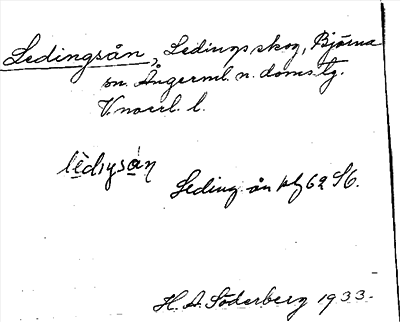 Ledingsån, Ledingsskog, Björna
sn. Ångerml. n. doms. tg.
V. norrl. l.
lèdiŋsán
Leding-ån kbl 62 S6.
H. A. Söderberg 1933.